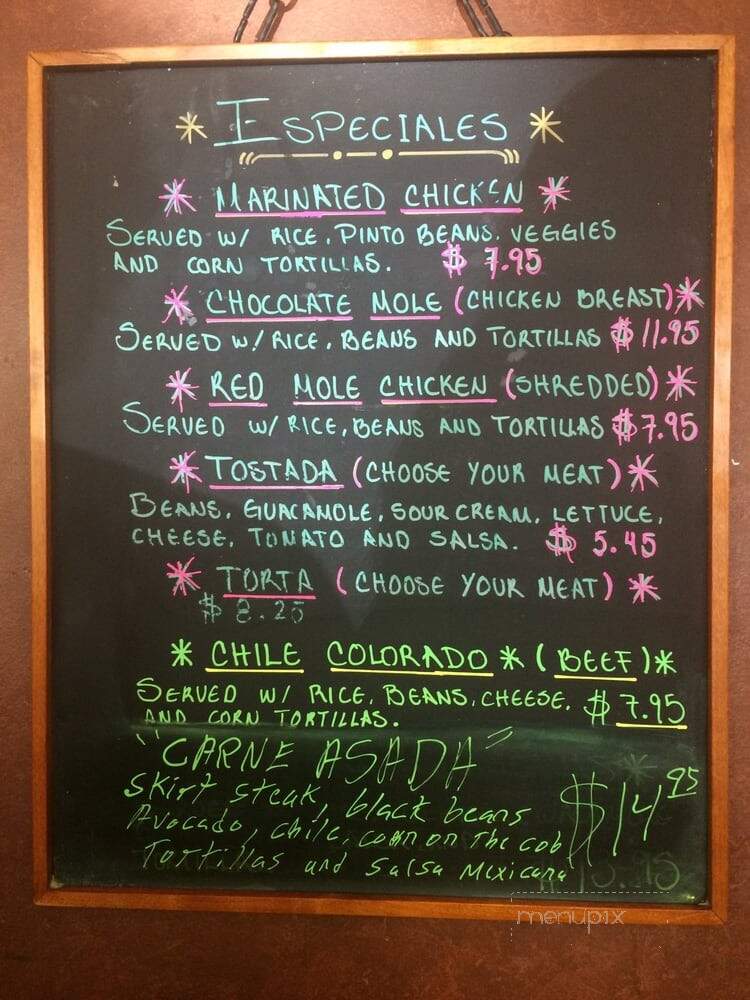 * ESPECIALES *
* MARINATED CHICKEN *
SERVED W/ RICE, PINTO BEANS, VEGGIES
AND CORN TORTILLAS. $ 7.95
* CHOCOLATE MOLE (CHICKEN BREAST) *
SERVED W/ RICE, BEANS AND TORTILLAS $ 11.95
* RED MOLE CHICKEN (SHREDDED) *
SERVED W/ RICE, BEANS AND TORTILLAS $7.95
* TOSTADA (CHOOSE YOUR MEAT) *
BEANS, GUACAMOLE, SOUR CREAM, LETTUCE,
CHEESE, TOMATO AND SALSA. $ 5.45
* TORTA (CHOOSE YOUR MEAT) *
$ 8.25
* CHILE COLORADO * (BEEF) *
SERVED W/ RICE, BEANS, CHEESE, $ 7.95
AND CORN TORTILLAS.
"CARNE ASADA"
Skirt steak, black beans $14 95
Avocado, chile, corn on the cob
Tortillas and Salsa Mexicana
menupix